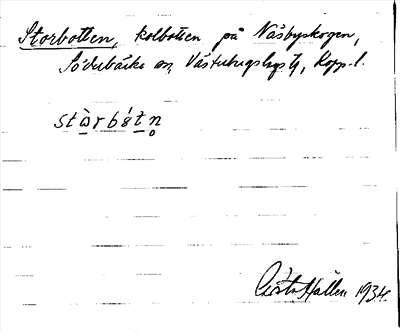 Storbotten, kolbotten på Näsbyskogen,
Söderbärke sn, Västerbergslags tg, Kopp. l.
stὼrbʹs̀tn̥
Gösta Hallén 1934.